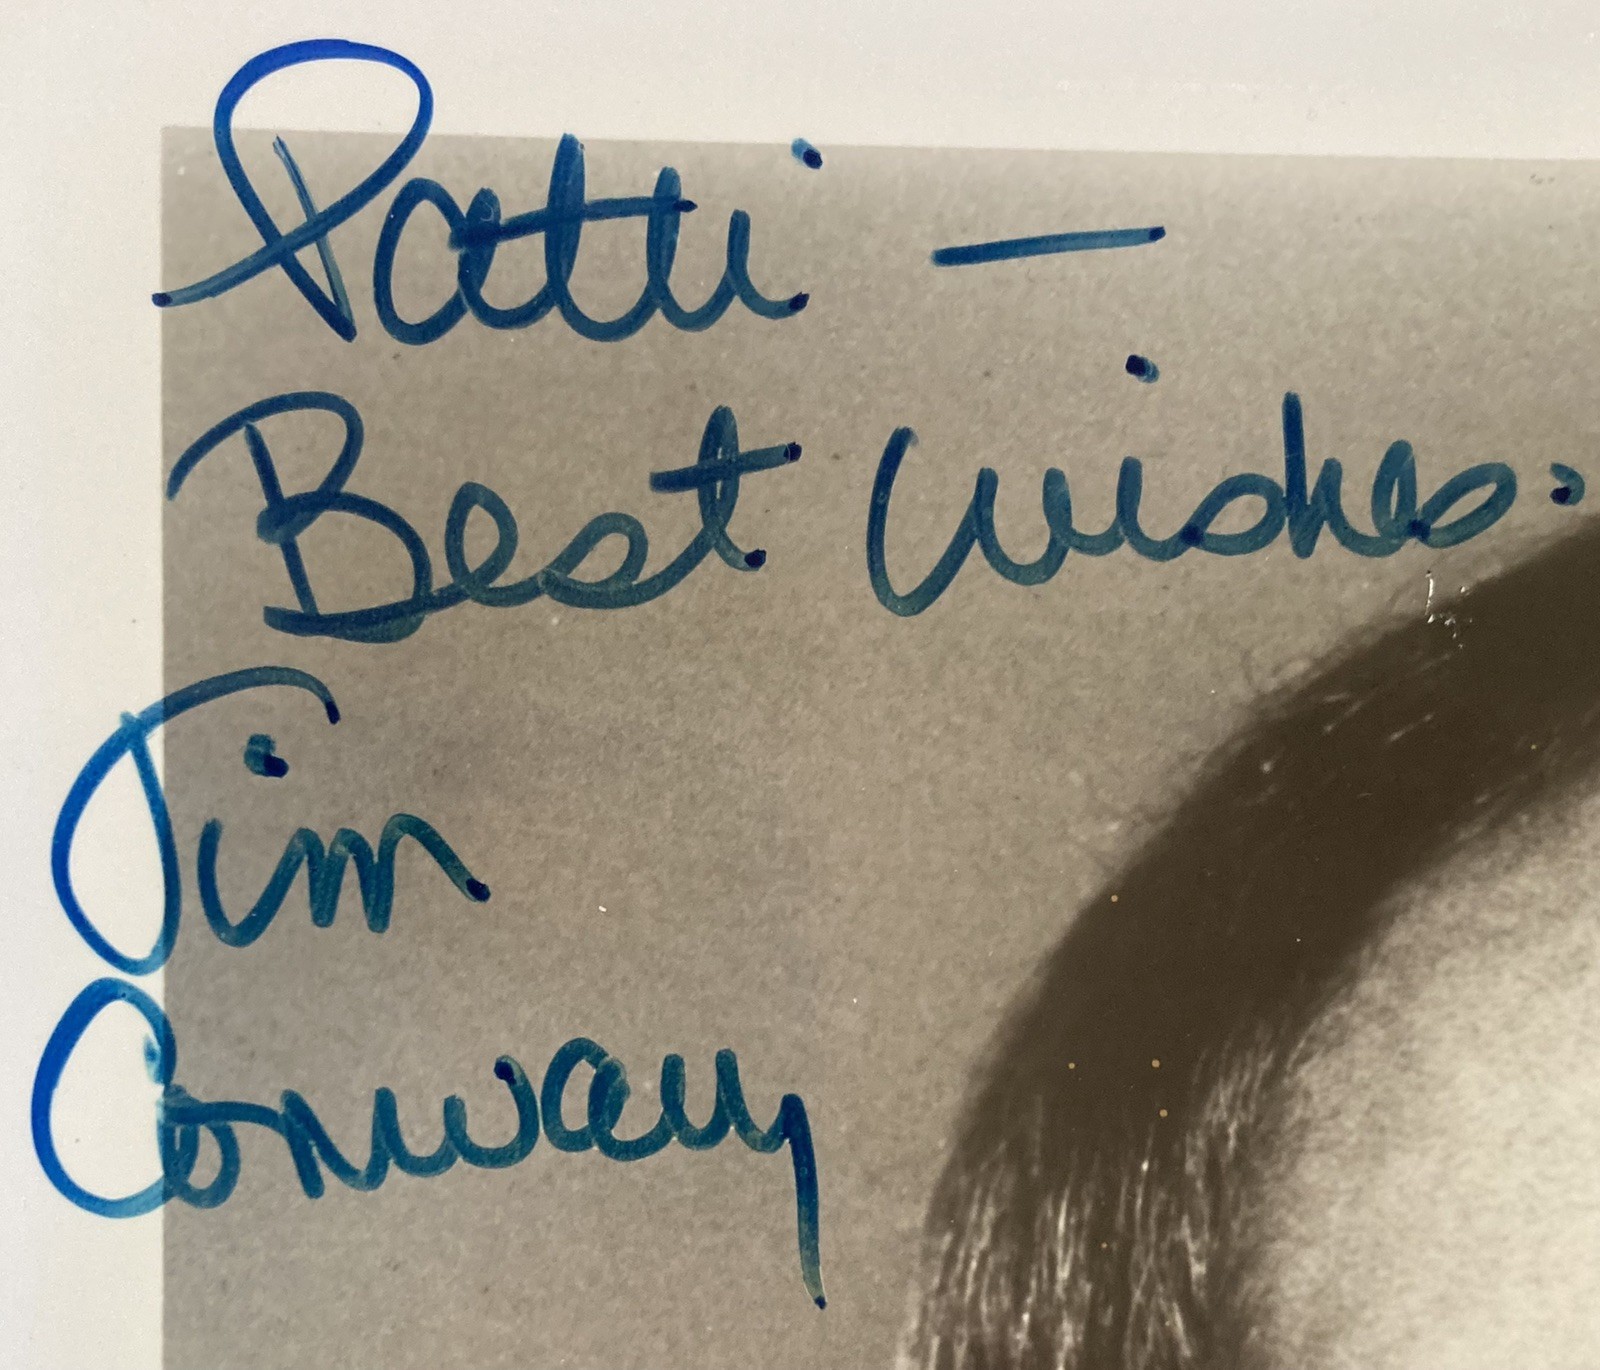 Patti —
Best Wishes.
Tim
Conway